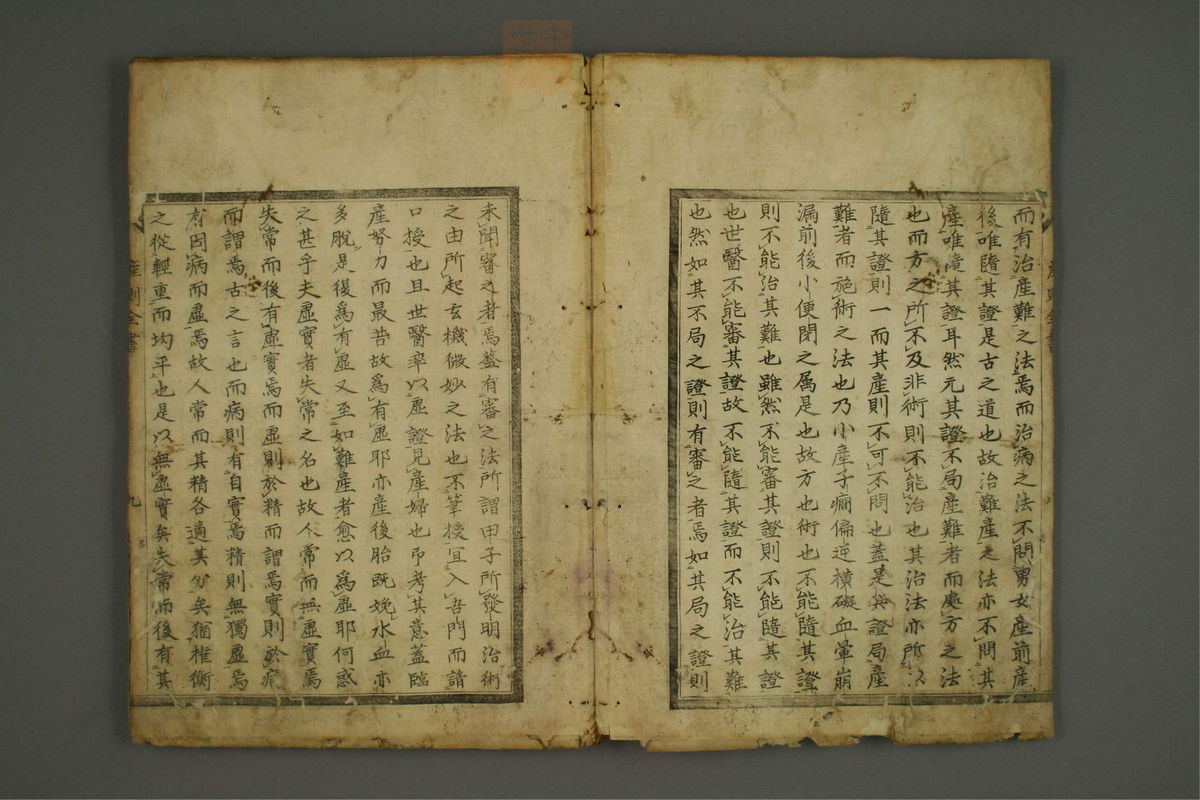 而有治産難之法焉而治病之法不問男女産前産
後唯隨其證是古之道也故治難産之法亦不問其
産唯慮其證耳然元其證不局産難者而處方之法
也而方之所不及非術則不能治也其治法亦所以
隨其證則一而其産則不可不問也蓋是其證局産
難者而施術之法也乃小産子癎偏逆横礙血暈崩
漏前後小便閉之属是也故方也術也不能隨其證
則不能治其難也雖然不能審其證則不能隨其證
也世醫不能審其證故不能隨其證而不能治其難
也然如其不局之證則有審之者焉如其局之證則
未聞審之者焉蓋有審之法所謂甲子所發明治術
之由所起玄機微妙之法也不筆授冝入吾門而請
口授也且世醫率以虚證見産婦也予考其意蓋臨
産努力而最苦故爲有虚耶亦産後胎既娩水血亦
多脱是復爲有虚又至如難産者愈以爲虚耶何惑
之甚乎夫虚實者失常之名也故人常而無虚實焉
失常而後有虚實焉而虚則於精而謂焉實則於病
而謂焉古之言也而病則有自實焉精則無獨虚焉
有因病而虚焉故人常而其精各適其分矣猶權衡
之從輕重而均平也是以無虚實矣失常而後有其
産則全書
九